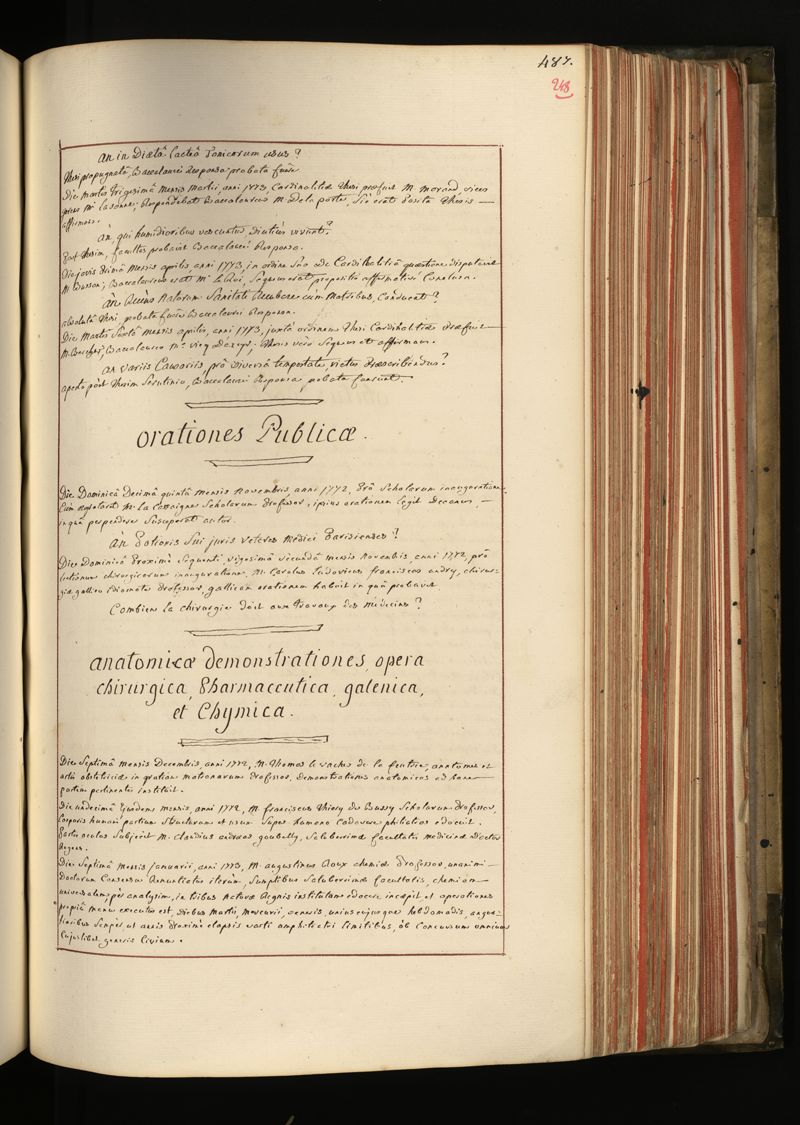 487.
248
an in Diætâ lacteâ Tonicorum usus?
thesi propugnatâ, Baccalaurei Responsa probata fuêre
Die martis trigesimâ mensis martii, anni 1773, Cardinalitiæ thesi præfuit M. morand, vices
M.i lasonne; Respondebat Baccalaureus M. De la porte, sic erat posita thesis
affirmans.
an, qui humidioribus vescuntur, diutiùs vivant?
post thesim, facultas probavit Baccalaurei Responsa.
Die jovis primâ mensis aprilis, anni 1773, in ordine suo de Cardinalitiâ quæstione disputavit
M. Busson; Baccalaureus erat M.r le Roi, sequens erat propositio affirmativè Conclusa.
an Recèns natorum sanitati decubare cùm matribus, Conducat?
absolutâ thesi, probata fuêre Baccalaurei Responsa.
Die martis Sextâ mensis aprilis, anni 1773, juxtà ordinem thesi Cardinalitiæ præfuit
M. Bercher, Baccalaureo M.o vicq Dazyr; thesis verò sequens est affirmans.
an variis Camariis, prô diversâ tempestate, victus præscribendus?
apertô post thesim Scrutinio, Baccalaurei Responsa probata fuerunt.
orationes Publicæ.
Die Dominicâ Decimâ quintâ mensis novembris, anni 1772, prô Scholarum inauguratione
Cùm ægrotaret M. la Cassaigne Scholarum professor, ipsius orationem legit Decanus,
in quâ perpendere susceperat autor.
àn potioris sui juris veteres medici parisienses?
Die Dominicâ proximè sequenti, vigesimâ secundâ mensis novembris, anni 1772, prô
lectionum chirurgicarum inauguratione, M. Carolus ludovicus franciscus andry, chirur-
giæ gallico idiomate professor, gallicam orationem habuit in quâ probavit
Combien la chirurgie doit aux travaux des médecins?
anatomicæ demonstrationes, opera
chirurgica, Pharmaceutica, galenica,
et Chymica.
Die Septimâ mensis Decembris, anni 1772, M. thomas le vacher de la feutrie, anatomes et
artis obstetriciæ in gratiam matronarum professor, demonstrationes anatomicas ad hanc
partem pertinentes instituit.
Die undecimâ Ejusdem mensis, anni 1772, M. franciscus thiery de Bussy Scholarum professor,
Corporis humani partium structuram et usum super humano Cadavere philiatros edocuit.
partes oculis subjecit M. Claudius andreas goubelly, saluberrimæ facultatis medicinæ Doctor
Regens.
Die Septimâ mensis januarii, anni 1773, M. augustinus Roux chemiæ professor, unanimi
Doctorum Consensu Renuntiatus iterùm, sumptibus saluberrimæ facultatis, chemiam
universalem, pèr analysim, in tribus naturæ Regnis institutam edocere incæpit et operationes
propriâ manu executus est, diebus martis, mercurii, veneris, uniuscujusque hebdomadis, angus-
tioribus sempèr, ut annis proximè elapsis vasti amphiteatri limitibus, ob Concursum omnium
Cujuslibet generis Civium.